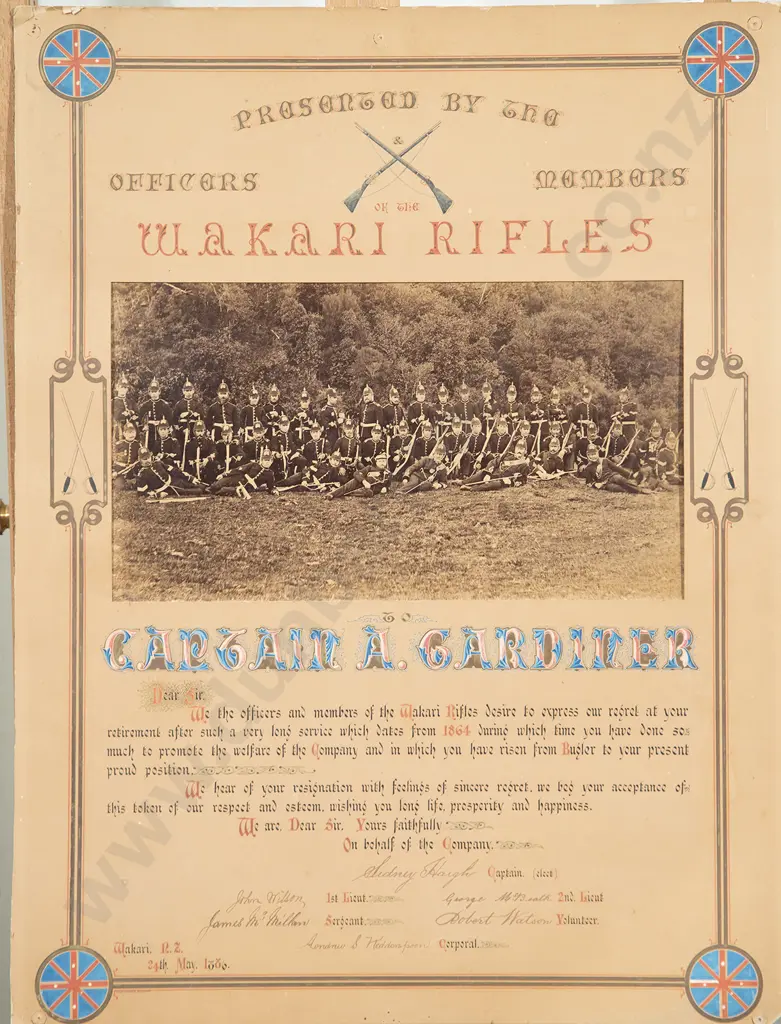 PRESENTED BY THE
&
OFFICERS MEMBERS
OF THE
WAKARI RIFLES
TO
CAPTAIN A. GARDINER
Dear Sir.
We the officers and members of the Wakari Rifles desire to express our regret at your
retirement after such a very long service which dates from 1864 during which time you have done so
much to promote the welfare of the Company and in which you have risen from Bugler to your present
proud position.
We hear of your resignation with feelings of sincere regret, we beg your acceptance of
this token of our respect and esteem, wishing you long life, prosperity and happiness.
We are, Dear Sir, Yours faithfully
On behalf of the Company.
Sidney Haigh Captain. (elect)
John Wilson 1st Lieut. George McBeath 2nd. Lieut
James McMillan Sergeant. Robert Watson Volunteer.
Corporal.
Wakari, N.Z.
24th. May, 1886.